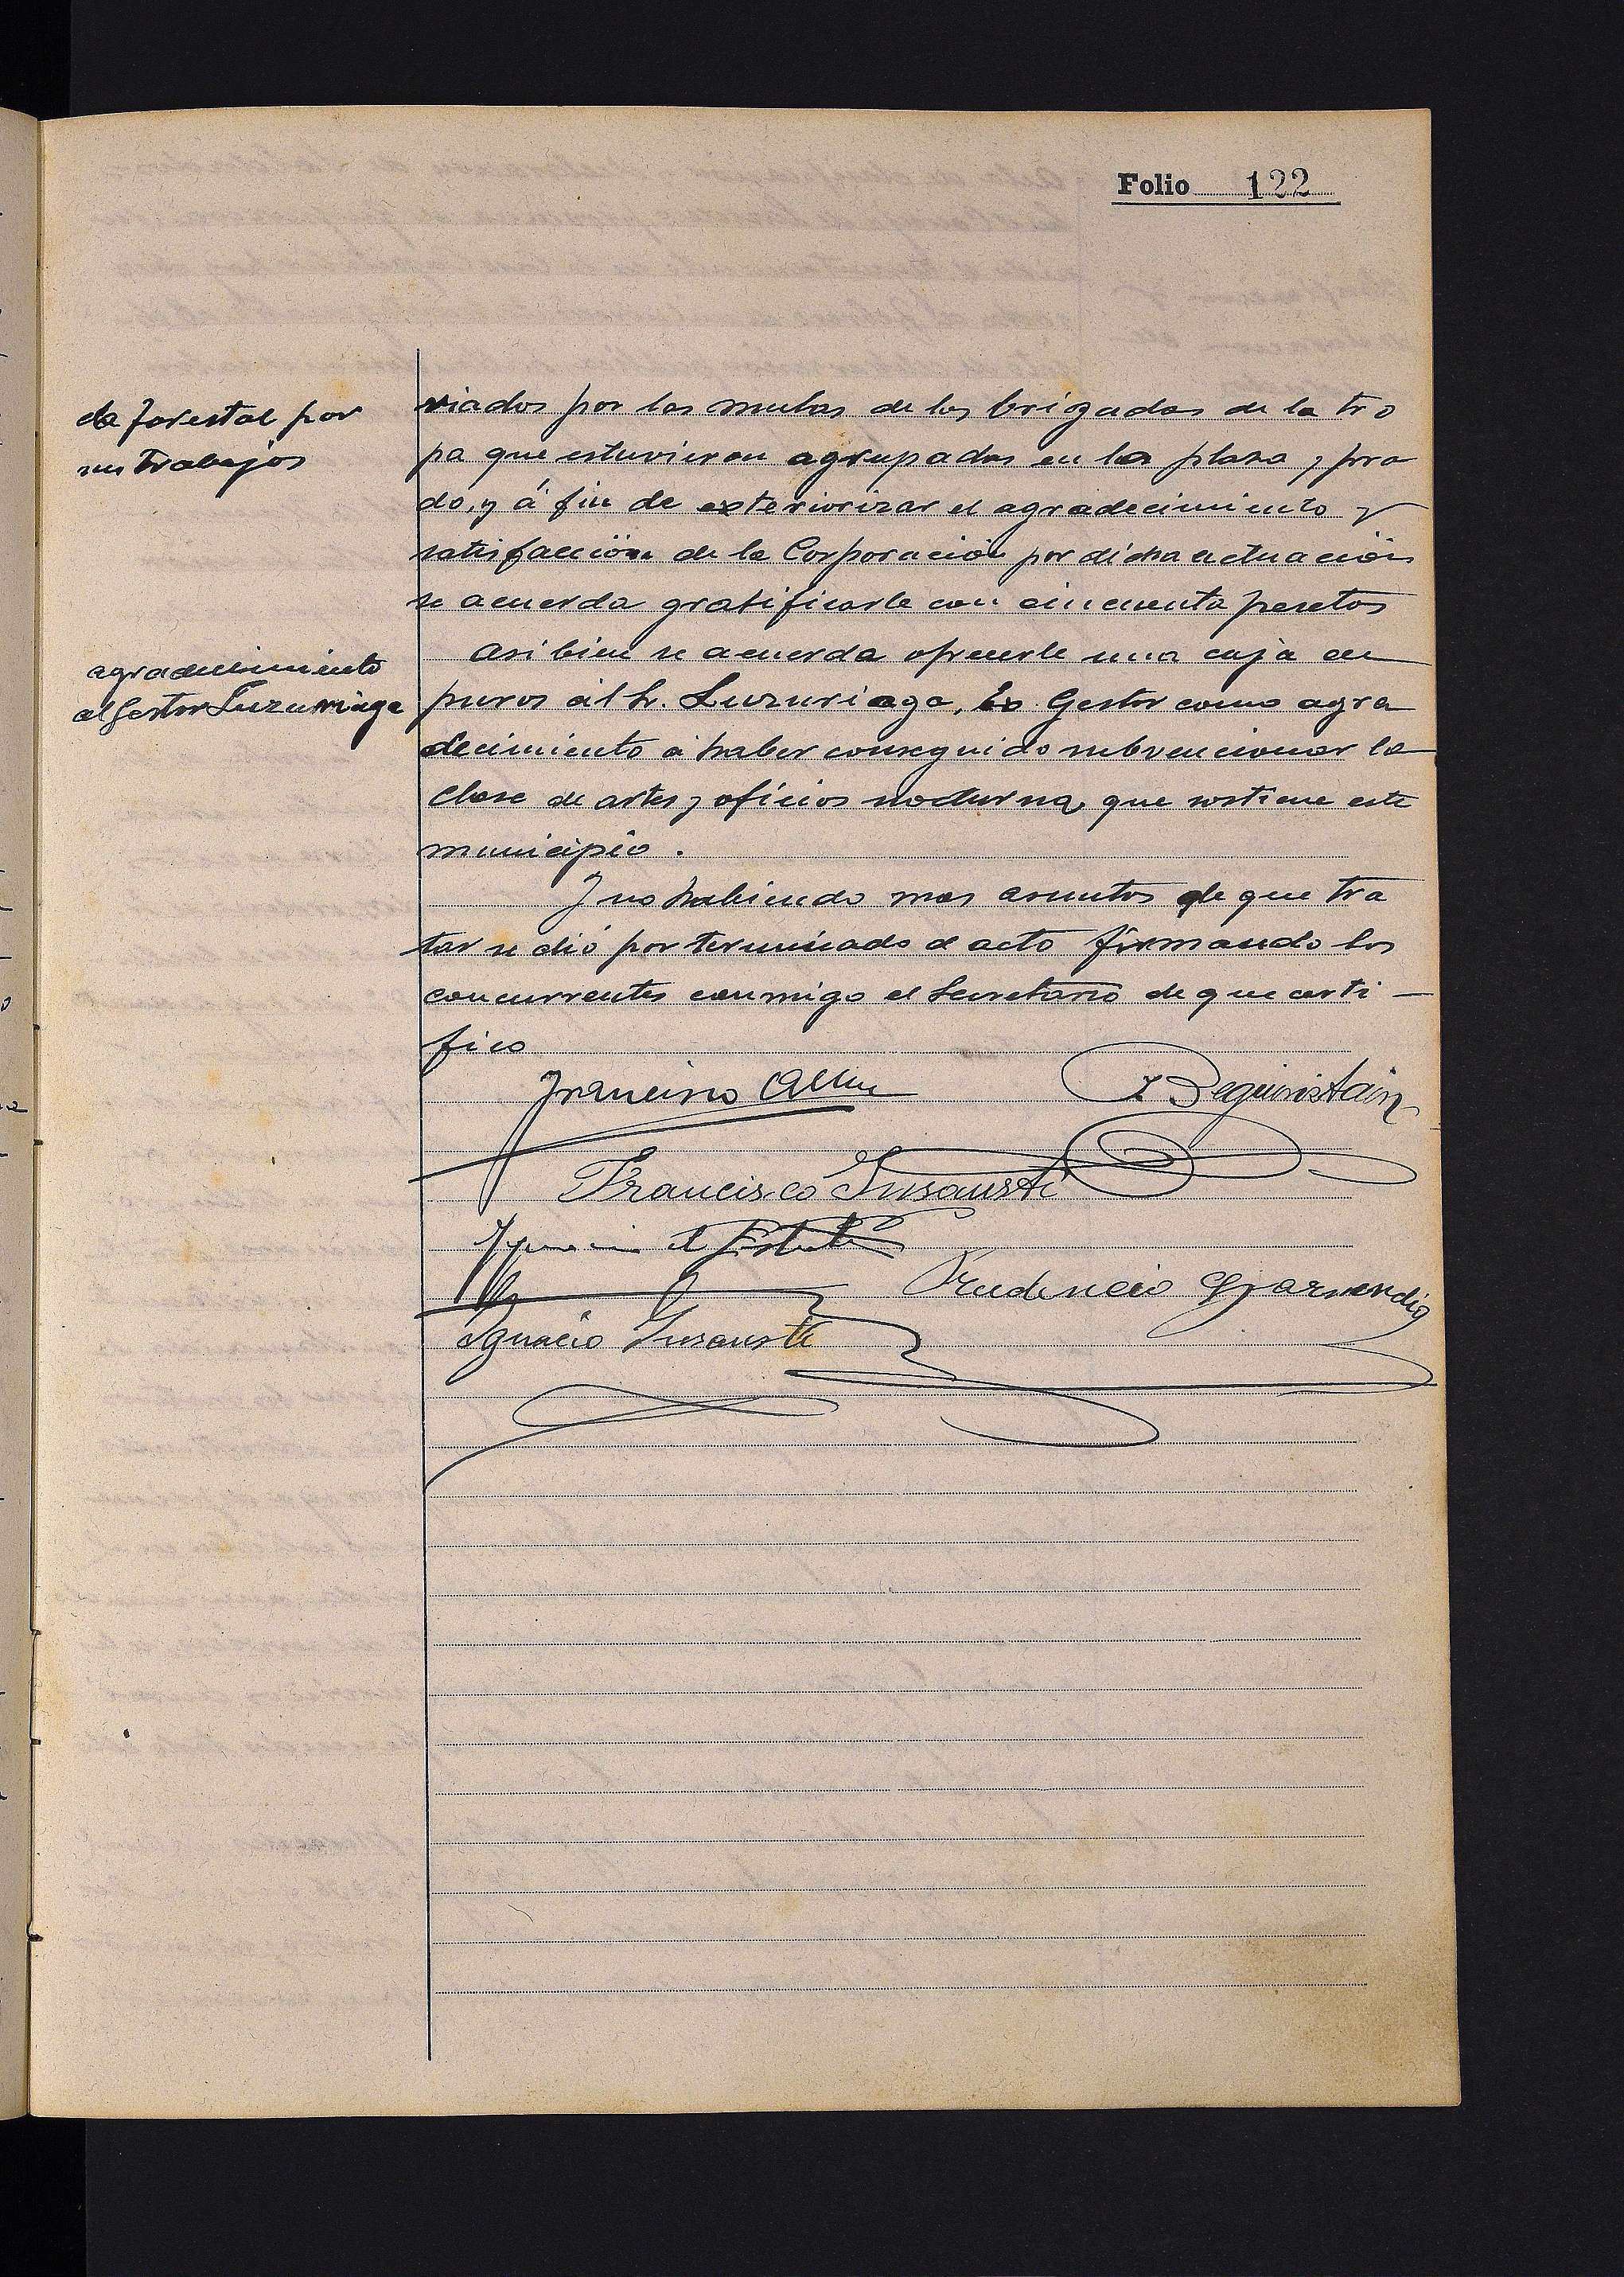 Folio 122
da forestal por
sus trabajos
viados por las mulas de las brigadas de la tro
pa que estuvieron agrupadas en la plaza y pra
do, y á fin de exteriorizar el agradecimiento y
satisfacción de la Corporación por dicha actuación
se acuerda gratificarle con cincuenta pesetas
agradecimiento
al gestor Luzuriaga
Asi bien se acuerda ofrecerle una caja de
puros al Sr. Luzuriaga, Ex Gestor como agra
decimiento a haber conseguido subvencionar la
clase de artes y oficios nocturna, que sostiene este
municipio.
Y no habiendo mas asuntos de que tra
tar se dió por terminado el acto firmando los
concurrentes conmigo el Secretario de que certi-
fico
Francisco
Beguiristain
Francisco Insausti
Prudencio Garmendia
Ignacio Insausti